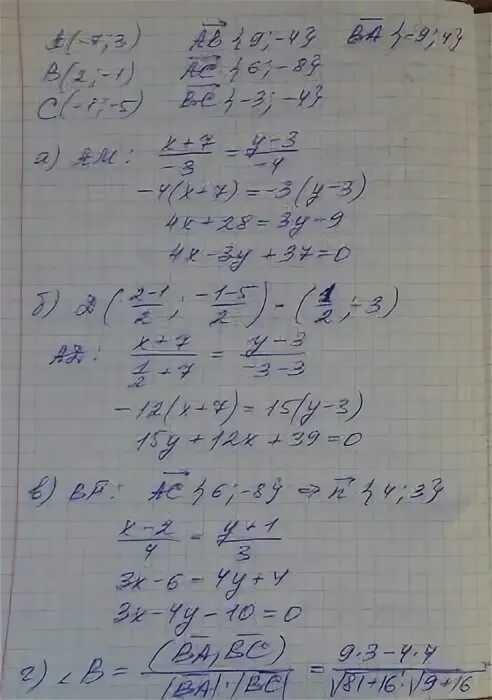 A(-7;3) AB {9;-4} BA {-9;4}
B(2;-1) AC {6;-8}
C(-1;-5) BC {-3;-4}
а) AM: x+7/-3 = y-3/-4
-4(x+7)=-3(y-3)
4x+28=3y-9
4x-3y+37=0
б) D(2-1/2; -1-5/2)-(1/2;-3)
AD: x+7/1/2+7 = y-3/-3-3
-12(x+7)=15(y-3)
15y+12x+39=0
в) BF: AC {6;-8} ⇒ n {4;3}
x-2/4 = y+1/3
3x-6=4y+4
3x-4y-10=0
г) ∠B = (BA, BC)/|BA|·|BC| = 9·3-4·4/√81+16·√9+16